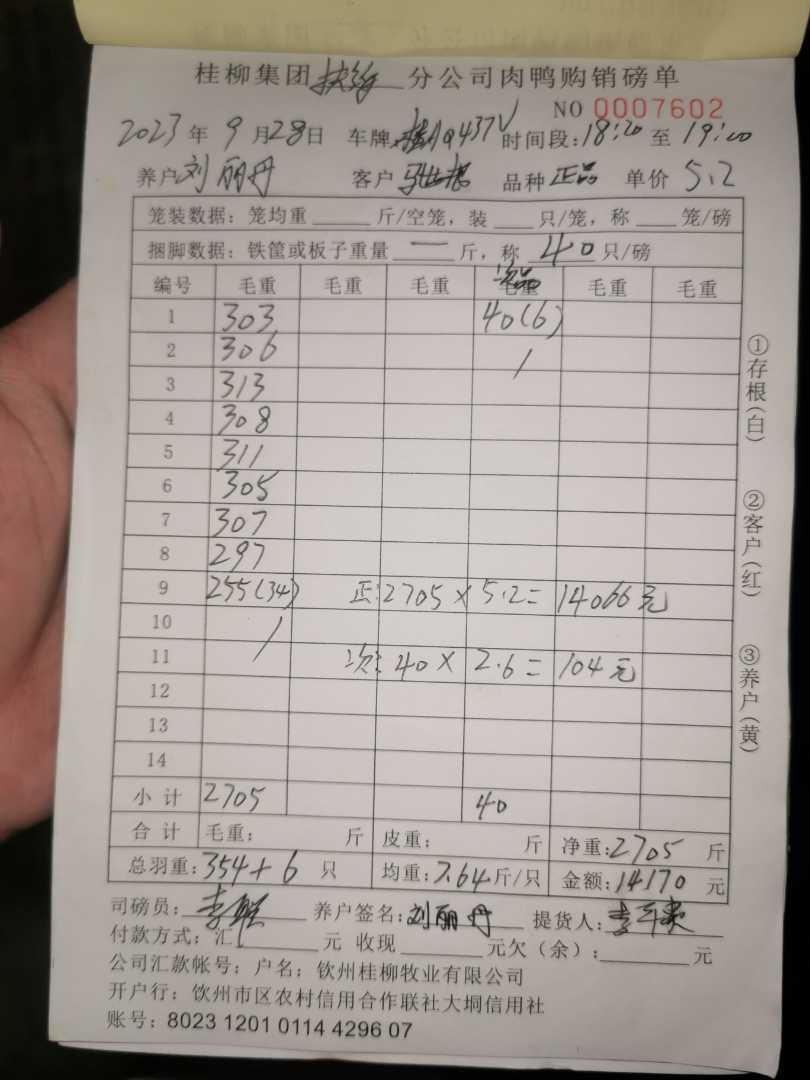 桂柳集团 分公司肉鸭购销磅单
NO 0007602
2023年9月28日 车牌 Q437V 时间段:18:20至19:00
养户 刘丽丹 客户 品种 正品 单价 5.2
笼装数据：笼均重____斤/空笼，装____只/笼，称____笼/磅
捆脚数据：铁筐或板子重量 一 斤，称 40 只/磅
编号 毛重 毛重 毛重 次品 毛重 毛重
1 303 40(6)
2 306 /
3 313
4 308
5 311
6 305
7 307
8 297
9 255(34) 正:2705×5.2=14066元
10 /
11 次:40×2.6=104元
12
13
14
小计 2705 40
合计 毛重： 斤 皮重： 斤 净重:2705 斤
总羽重:354+6 只 均重:7.64斤/只 金额:14170元
司磅员: 养户签名:刘丽丹 提货人:
付款方式：汇____元 收现____元欠（余）:____元
公司汇款帐号：户名：钦州桂柳牧业有限公司
开户行：饮州市区农村信用合作联社大垌信用社
账号：8023 1201 0114 4296 07
①存根(白)
②客户(红)
③养户(黄)